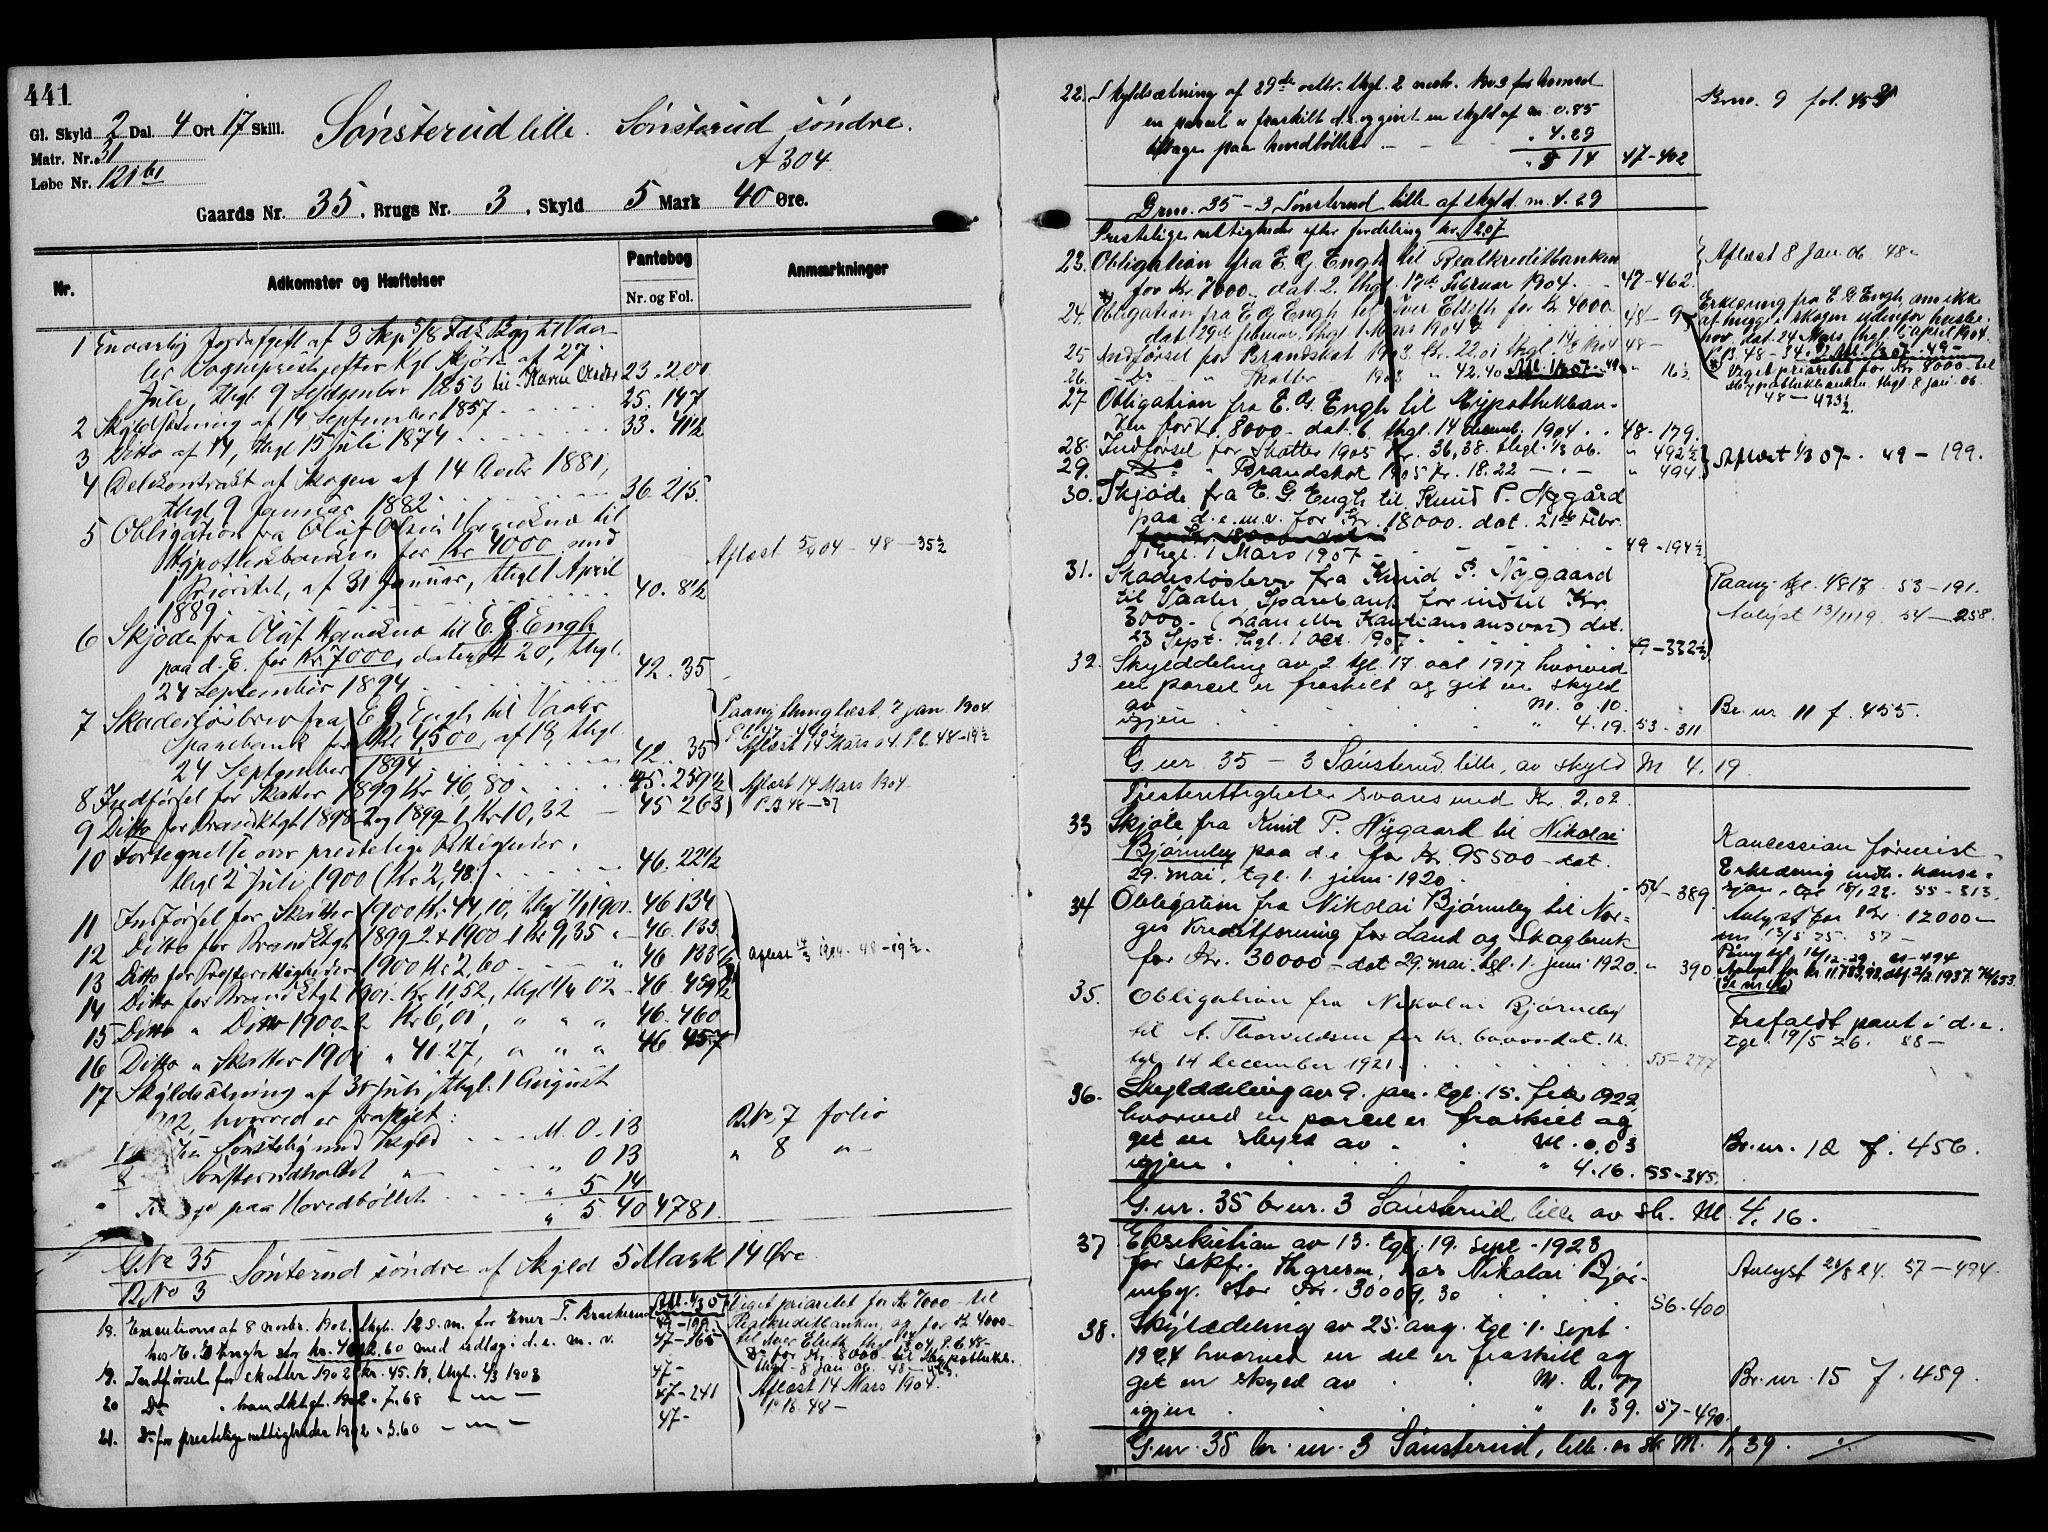 441
Gl. Skyld 2 Dal. 4 Ort 17 Skill.
Matr. Nr. 31
Løbe Nr. 121 b1
Sønsterud lille. Sønsterud søndre.
A 304
Gaards Nr. 35, Brugs Nr. 3, Skyld 5 Mark 40 Øre.
Nr. Adkomster og Hæftelser Pantebog Anmærkninger
Nr. og Fol.
1 En aarlig Jordafgift af 3 Skp 5/8 Fdk Byg til Vaa-
ler Sogneprest, efter Kgl Skjøde af 27
Juli, thgl 9 September 1853 til Karen 23. 200
2 Skyldsætning af 14 September 1857 25. 147
3 Ditto af 14, thgl 15 juli 1874 33. 41½
4 Delekontrakt af Skogen af 14 Decbr 1881,
thgl 9 Januar 1882 36. 215
5 Obligation fra Oluf Olsen til
Hypothekbanken for Kr 4000 med
Prioritet, af 31 januar, thgl 1 April
1889 40. 81½ Aflæst 5/9 04 - 48 - 35½
6 Skjøde fra Oluf til E. G. Engh
paa d. E. for Kr 7000, dateret 20, thgl.
24 September 1894 42. 35
7 Skadesløsbrev fra E G Engh til Vaaler
Sparebank for Kr 4,500, af 18, thgl.
24 September 1894 42. 35
Paany thinglæst 7 jan. 1904
Aflæst 14 Mars 04. P.b. 48-19½
8 Indførsel for Skatter 1899 Kr 46,80 45. 259½ Aflæst 14 Mars 1904
9 Ditto for Brandktgt 1898-2 og 1899-1, Kr 10,32 45 263 P.B 48-
10 Fortegnelse over prestelige Rettigheder,
thgl 2 juli 1900 (Kr 2,48.) 46. 22½
11 Indførsel for Skatter 1900 Kr 44,10, thgl 7/1 1901 46 134
12 Ditto for Brandktgt 1899-2 & 1900-1 Kr 9,35 46. 133
13 Ditto for Presterettigheder 1900 Kr 2,60 46 133½ aflæst 14/3 1904 - 48 - 19½.
14 Ditto for Brandktgt 1901 Kr 11.52, thgl 02 46. 459½
15 Ditto " Ditto 1900-2 Kr 6,01, " " " 46. 460
16 Ditto " Skatter 1901 " 41.27, " " " 46 457
17 Skyldsætning af 30 juli, thgl. 1 August
1902, hvorved er fraskilt:
1 med Skyld M. 0.13 B.No. 7 folio
2 Sønsterudholtet " 0 13 " 8 "
paa Hovedbøllet " 5 14
" 5. 40 47 81.
G.No 35
B.No 3 Sønterud søndre af Skyld 5 Mark 14 Øre
18. Executions af 8 novbr. 1902, thgl. 12 s.m. for Ener T. Braskerud
hos E. G Engh stor kr. 4612.60 med udlæg i d.e. m. v. 47-165
Viget prioritet for Kr 7000 til
Realkreditbanken, og for Kr 4000-
Do for Kr. 8000- til Hypothekb.
thgl - 8 Jan 06. 48-
19. Indførsel for skatter 1902 kr. 45.18, thgl. 4/3 1903 47-
20 Do " brandktgt. 1902 " 7.68 " - " - 47-241 Aflæst 14 Mars 1904.
21. Do for prestelige rettigheder 1902 " 3.60 - " - 47- P.B. 48-
22. Skyldsætning af 29de oktbr. thgl. 2 novb. 1903 hvorved
en parcel er fraskilt d.e. og givet en skyld af m. 0.85
tilbage paa hovedbøllet " 4.29
" 5 14 47-402
Brno. 9 fol. 453
Grno. 35 - 3 Sønsterud lille af skyld m. 4.29
Prestelige rettigheder efter fordeling kr. 2.07
23. Obligation fra E. G Engh til Realkreditbanken
for Kr. 7000. dat. 2. thgl. 17de Februar 1904. 47-462. Aflæst 8 Jan. 06 48-
24. Obligation fra E G Engh til Iver Elseth for Kr 4000
dat 29de februar, thgl 1 Mars 1904 48-9
Erklæring fra E. G Engh om ikke
at hugge i skogen udenfor husbe-
hov, dat. 24 Mars, thgl. 5 april 1904.
P.B. 48-34. Afl. 1/3 07. 49-
* Viget prioritet for Kr 8000- til
Hypothekbanken thgl. 8 Jan. 06.
48-473½.
25 Indførsel for Brandskat 1903. Kr. 22.01 thgl. 14/3 1904 48-
26. - Do - " Skatter 1903 " 42.40 Afl. 1/3 07. 49 " 16½
27 Obligation fra E. G. Engh til Hypothekban-
ken for Kr. 8000- dat. 6. thgl. 14 decemb. 1904. 48-179.
28. Indførsel for Skatter 1905 Kr. 36,38. thgl. 1/3 06. " 492½
29. - Do - " Brandskat 1905 Kr. 18.22 - " - " 494. Aflæst 1/3 07. 49-199.
30. Skjøde fra E. G. Engh til Knud P. Nygård
paa d.e.m.v. for Kr. 18000. dat. 21de febr.
for Kr 18000 dat
thgl. 1 Mars 1907 49-194½
31. Skadesløsbrev fra Knud P. Nygaard
til Vaaler Sparebank for indtil Kr.
3000- (Laan eller Kautionsansvar) dat.
23 Sept. thgl. 1 Oct. 1907 49-332½
Paany tgl. 4/8 17 53-191.
Avlyst 13/11 19. 54-258.
32. Skylddeling av 2 tgl. 17. oct 1917 hvorved
en parcel er fraskilt og git en skyld
av M. 0.10. Br. nr 11 f. 455.
igjen " 4.19. 53-311
G. nr. 35 - 3 Sønsterud lille, av skyld M 4.19.
Presterettigheter svares med Kr. 2,02.
33 Skjøte fra Knut P. Nygaard til Nikolai
Bjørneby paa d.e for Kr. 95500- dat.
29. mai, tgl. 1. juni 1920. 54-389.
Koncession forevist.
Erklæring indh. konse-
sjon, tgl 18/1 22. 55-313.
34 Obligation fra Nikolai Bjørneby til Nor-
ges Kreditforening for Land og Skogbruk
for Kr. 30000- dat 29. mai. tgl. 1. juni 1920. " 390
Avlyst for Kr. 12000-
13/5 25. 57-
Påny tgl. 16/12-29. 61-494
Avlyst for kr 11.783,92, 2/2 1937.
35. Obligation fra Nikolai Bjørneby
til A. Thorvaldsen for Kr. 60,000- dat. 12.
tgl 14 december 1921. 55-277
Frafaldt pant i d.e.
tgl. 19/5 26. 58-
36. Skylddeling av 9. jan. tgl. 15. febr 1922,
hvorved en parcel er fraskilt og
git en skyld av M. 0.03 Br. nr. 12 f. 456.
igjen " 4.16. 55-345.
G. nr. 35 br. nr. 3 Sønsterud, lille av sk. M. 4.16.
37 Eksekution av 13. tgl. 19. sept. 1923
for sakf. Thoresen, hos Nikolai Bjør-
neby. stor Kr. 30009.30 56-400
Avlyst 24/8 24. 57-494.
38. Skylddeling av 25. aug. tgl. 1. sept.
1924 hvorved en del er fraskilt og
git en skyld av M. 2.77 Br. nr. 15 f. 459.
igjen " 1.39. 57-490.
G. nr. 35 br. nr. 3 Sønsterud, lille av sk. M. 1,39.